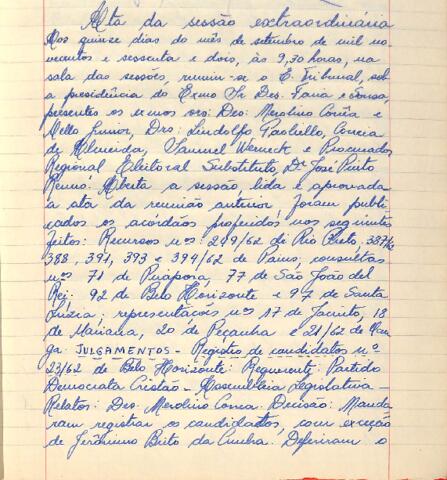 Acta da sessão extraordinária
Aos quinze dias do mês de setembro de mil no-
vecentos e sessenta e dois, às 9,30 horas, na
sala das sessões, reuniu-se o E. Tribunal, sob
a presidência do Exmo Sr Des. Faria e Sousa,
presentes os exmos srs: Des: Merolino Corrêa e
Mello Junior, Drs: Lindolfo Paoliello, Correia
de Almeida, Samuel Werneck e Procurador
Regional Eleitoral Substituto, Dr José Pinto
Renno. Aberta a sessão, lida e aprovada
a ata da reunião anterior, foram publi-
cados os acórdãos proferidos nos seguintes
feitos: Recursos nos: 249/62 de Rio Preto, 387/62
388, 391, 393 e 394/62 de Pains, consultas
nos 71 de Pirapora, 77 de São João del
Rei; 92 de Belo Horizonte e 97 de Santa
Luzia; representações nos 17 de Jacinto, 18
de Mariana, 20 de Peçanha e 21/62 de
ga. JULGAMENTOS - Registro de candidatos nº
23/62 de Belo Horizonte: Requerente: Partido
Democrata Cristão - Assembléia Legislativa -
Relator: Des. Merolino Correa. Decisão: Manda-
ram registrar os candidatos, com exceção
de Jerônimo Brito da Cunha. Deferiram o